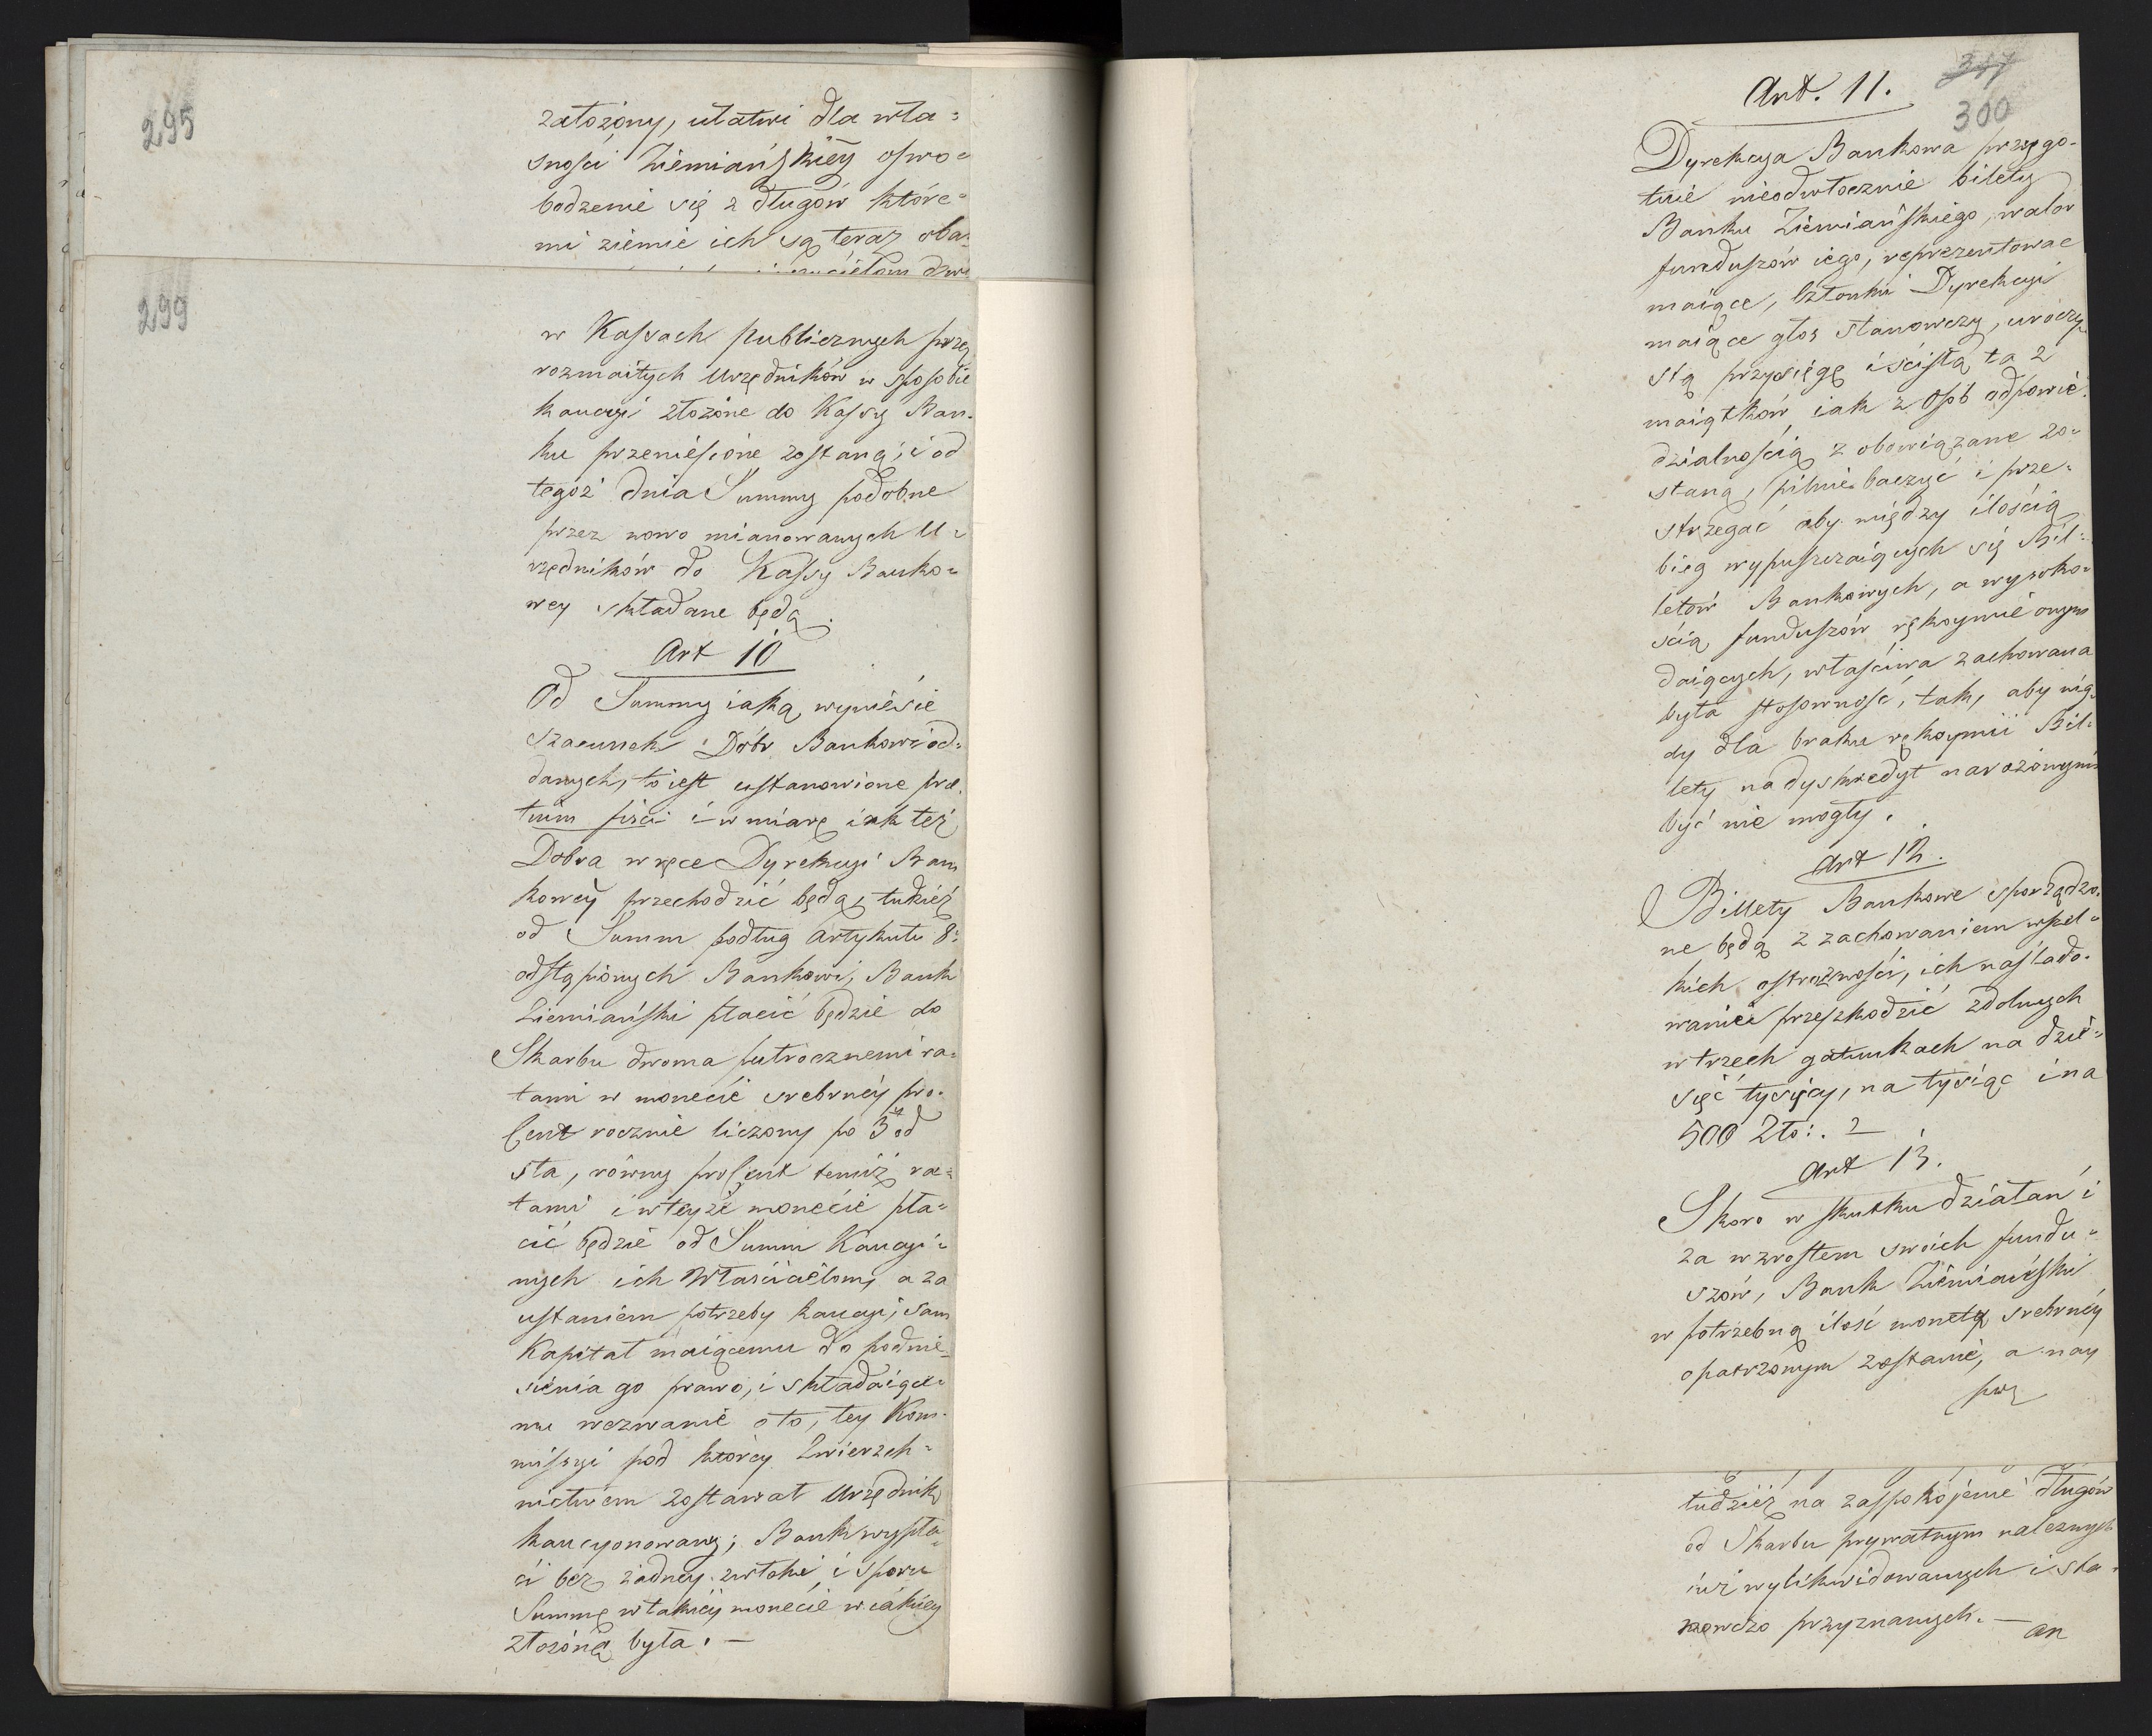 295
założony, ułatwi dla wła=
sności Ziemiańskiéy oswo=
bodzenie się z długów które=
mi ziemie ich są teraz oba=
299
w Kassach publicznych przez
rozmaitych Urzędników w sposobie
kaucyi złożone do Kassy Ban=
ku przeniesione zostaną; i od
tegoż dnia Summy podobne
przez nowo mianowanych U=
rzędników do Kassy Banko=
wey składane będą.
Art 10
Od Summy iaką wyniesie
szacunek Dóbr Bankowi od=
danych, to iest ustanowione pre=
tium fisci i w miarę iak też
Dobra w ręce Dyrekcyi Ban
kowéy przechodzić będą, tudzież
od Summ podług Artykułu 8:
odstąpionych Bankowi, Bank
Ziemiański płacić będzie do
Skarbu dwoma pułrocznemi ra=
tami w monecie srebrnéy pro=
Cent rocznie liczony po 3 od
sta, równy proCent temiż ra=
tami i w teyże monecie pła=
cić będzie od Summ Kaucyi=
nych ich Właścicielom, a za
ustaniem potrzeby kaucyi, sam
Kapitał maiącemu do podnie=
sienia go prawo, i składaiące=
mu wezwanie o to, tey Kom=
missyi pod któréy Zwierzch=
nictwem zostawał Urzędnik
kaucyonowany; Bank wypła=
ci bez żadney zwłoki i sporu
Summę w takiéy monecie w iakiéy
złożoną była. —
317
300
Art. 11.
Dyrekcya Bankowa przygo=
tuie nieodwłocznie bilety
Banku Ziemiańskiego, walor
funduszów iego, reprezentować
maiące, Członki Dyrekcyi
maiące głos stanowczy, uroczy
stą przysięgę i ścisłą ta z
maiątków iak z Osób odpowie=
dzialnością z obowiązane zo=
staną, pilnie baczyć i prze=
strzegać aby między ilością
bieg wypuszczaiących się Bil=
letów Bankowych, a wysoko=
ścią funduszów rękoymie onym
daiących, właściwa zachowana
była stosowność, tak, aby nig
dy dla braku rękoymii Bil=
lety na dyskredyt narożonymi
być nie mogły.
Art 12.
Billety Bankowe sporządzo=
ne będą z zachowaniem wszel=
kich ostrożności, ich naślado=
waniu przeszkodzić zdolnych
w trzech gatunkach na dzie=
sięć tysięcy, na tysiąc i na
500 Zło:.
Art 13.
Skoro w skutku działań i
za wzrostem swoich fundu=
szów, Bank Ziemiański
w potrzebną ilość monety srebrnéy
opatrzonym zostanie, a nay
tudzież na zaspokojenie długów
od Skarbu prywatnym należnych
iuż wylikwidowanych i sta=
nowczo przyznanych. —
an